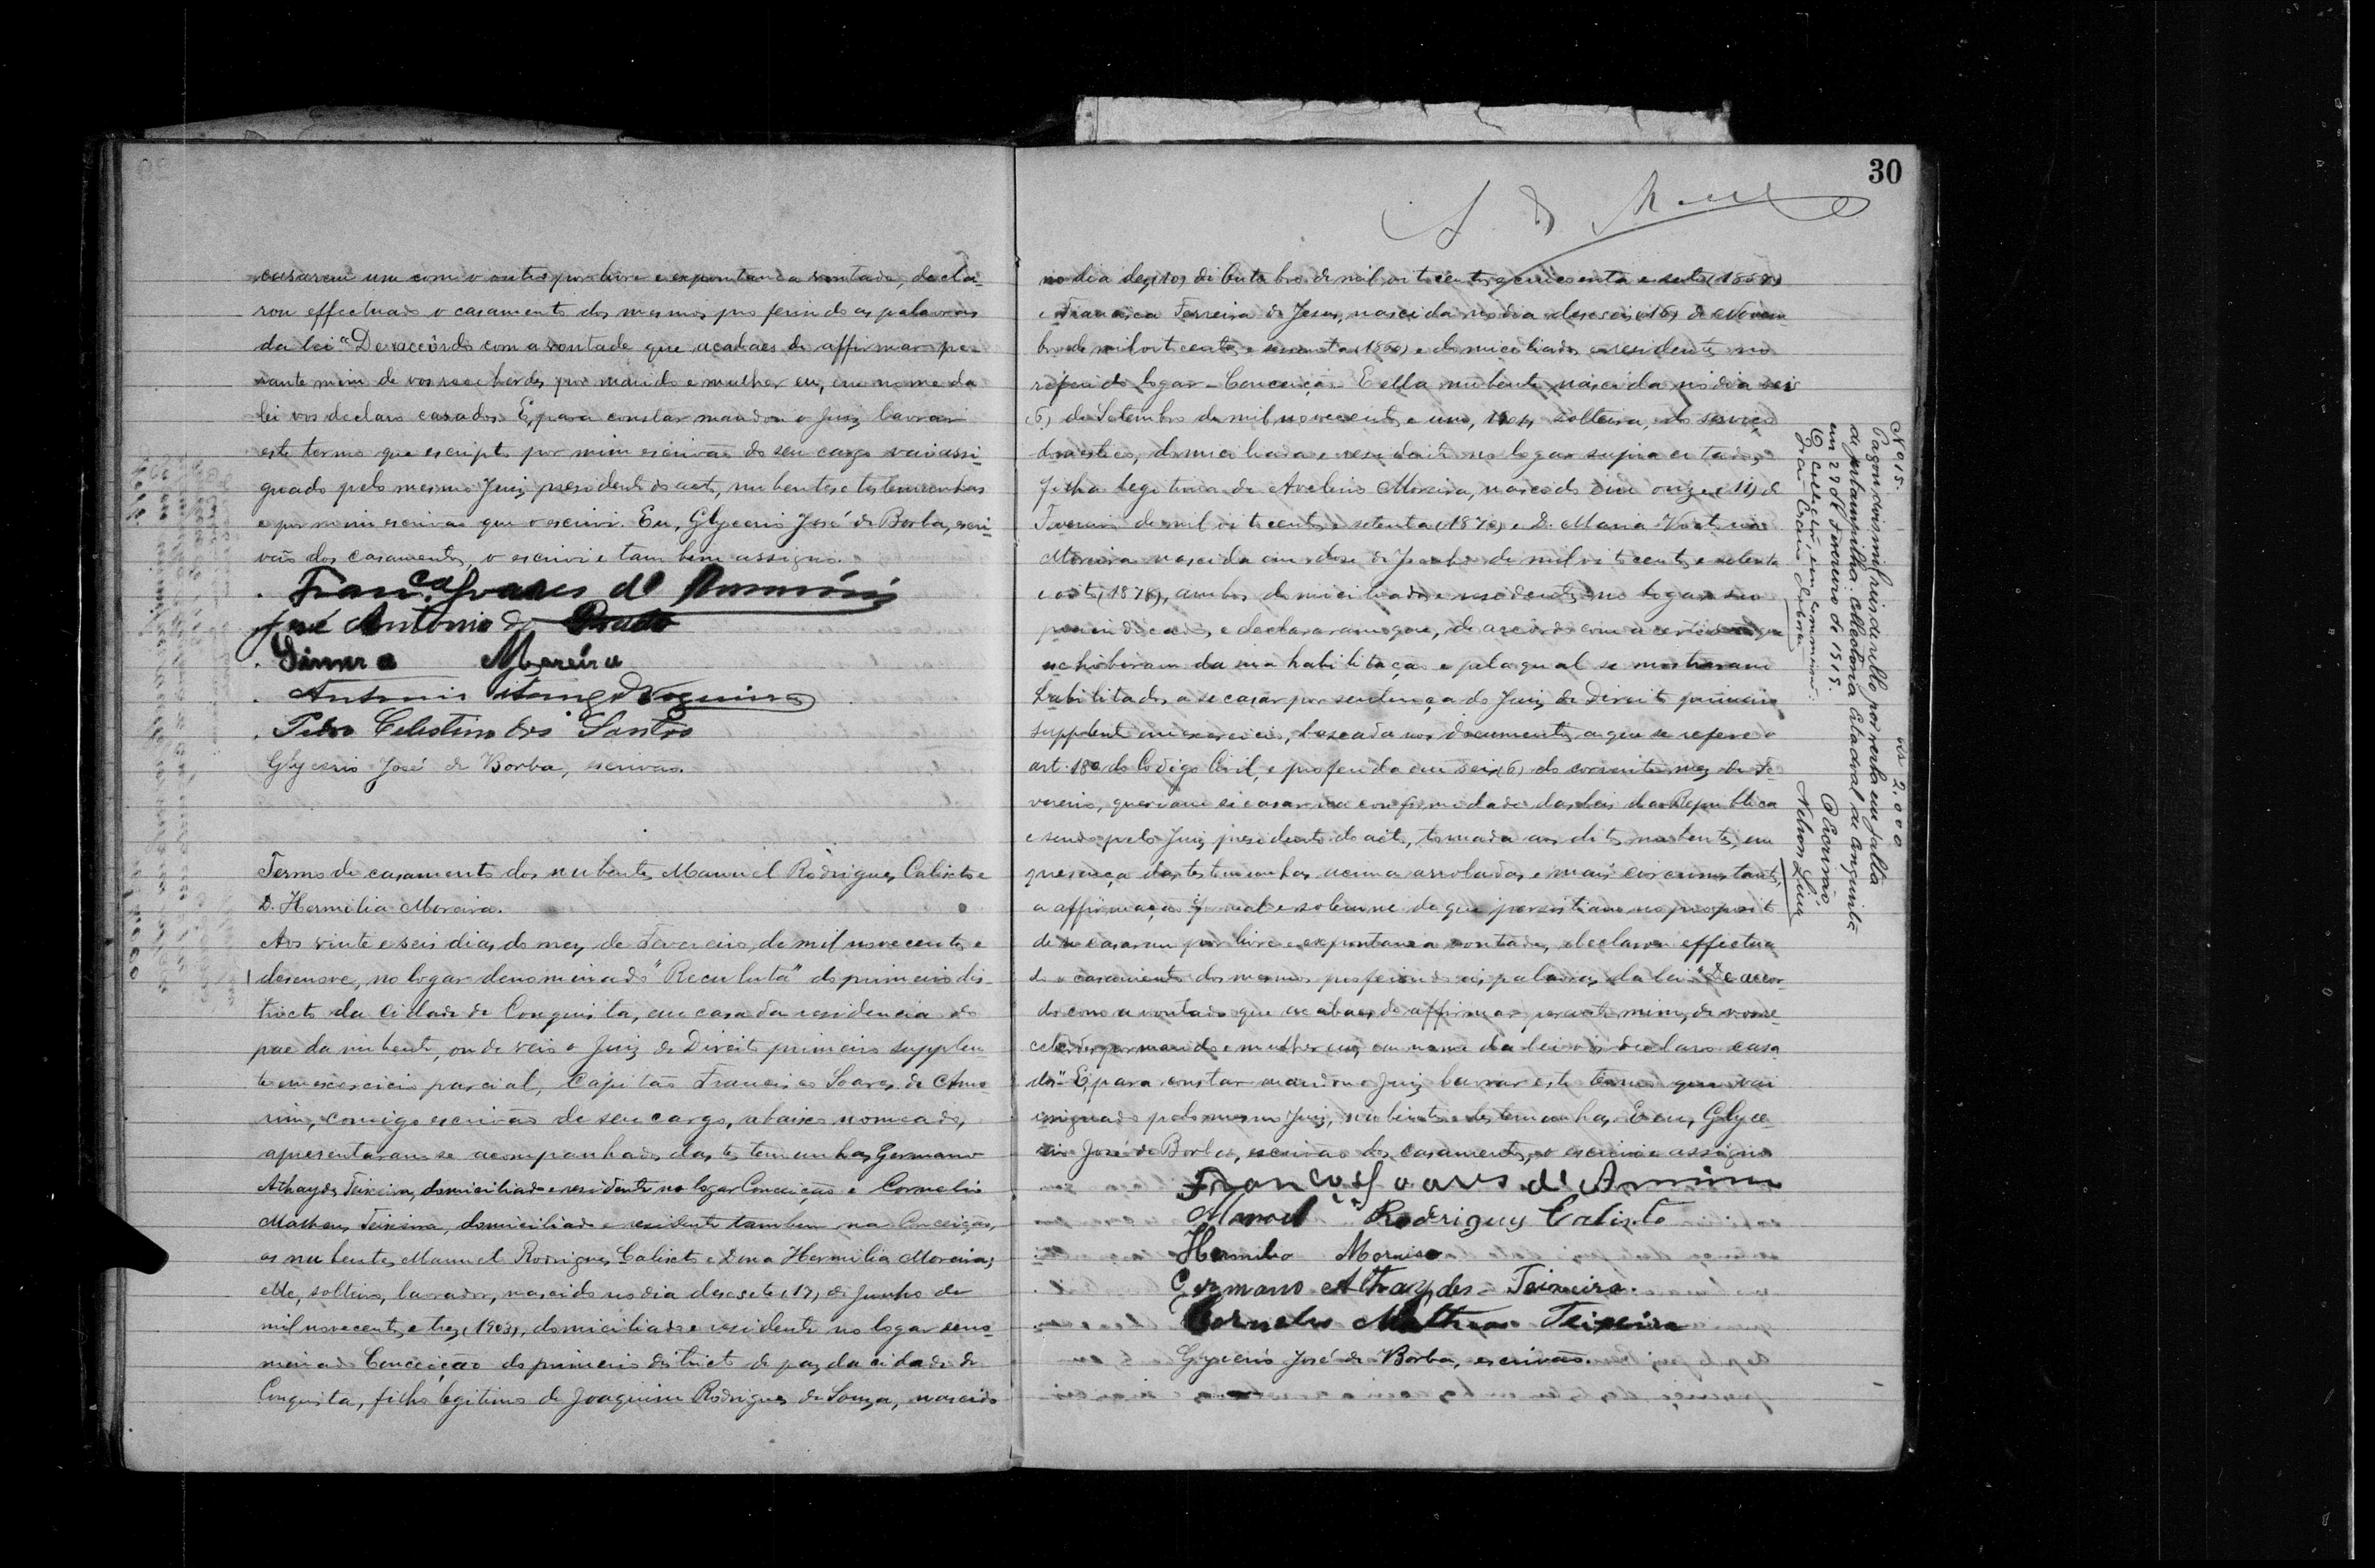 casarem um com o outro por livre e expontanea vontade, decla-
rou effectuado o casamento dos mesmos proferindo as palavras
da lei "De accôrdo com a vontade que acabaes de affirmar pe-
rante mim de vos receberdes por marido e mulher eu, em nome da
lei vos declaro casados. E, para constar mandou o Juiz lavrar
este termo que escripto por mim escrivão do seu cargo vai assi-
gnado pelo mesmo Juiz presidente do acto, nubentes e testemunhas
e por mim escrivão que o escrivi. Eu, Glycerio José de Borba, escri-
vão dos casamentos, o escrivi e tambem assigno.
Franco. Soares de Amorim
José Antonio do Prado
Moreira
Antonio
Pedro Celestino dos Santos
Glycerio José de Borba, escrivão.
Termo de casamento dos nubentes Manuel Rodrigues Calixto e
D. Hermilia Moreira.
Aos vinte e seis dias do mez de Fevereiro, de mil novecentos e
desenove, no logar denominado "Recruluta" do primeiro dis-
tricto da cidade de Conquista, em casa da residencia do
pae da nubente, onde veio o Juiz de Direito primeiro supplen-
te em exercicio parcial, Capitão Francisco Soares de Amo
rim, comigo escrivão de seu cargo, abaixo nomeado,
apresentaram-se acompanhados das testemunhas Germano
Athaydes Teixeira, domiciliado e residente no logar Conceição e Cornelio
Matheus Teixeira, domiciliado e residente tambem na Conceição,
os nubentes Manuel Rodrigues Calixto e Dona Hermilia Moreira;
elle, solteiro, lavrador, nascido no dia desesete (17) de Junho de
mil novecentos e tres (1903), domiciliado e residente no logar deno-
minado Conceição do primeiro districto de paz da cidade de
Conquista, filho legitimo de Joaquim Rodrigues de Souza, nascido
30
no dia dez (10) de Outubro de mil oitocentos e cincoenta e sete (1857)
e Francisca Ferreira de Jesus, nascida no dia deseseis (16) de Novem-
bro de mil oitocentos e sessenta (1860) e domiciliados e residentes no
referido logar - Conceição. E ella nubente nascida no dia seis
(6) de Setembro de mil novecentos e um, 1901, solteira, do serviço
domestico, domiciliada e residente no logar supra citado,
filha legitima de Avelino Moreira, nascido em onze (11) de
Fevereiro de mil oitocentos e setenta (1870) e D. Maria
Moreira nascida em dose de Junho de mil oitocentos e setenta
e oito (1878), ambos domiciliados e residentes no logar su-
pra indicado, e declararam que, de accôrdo com a certidão que
exhibiram da sua habilitação e pela qual se mostraram
habilitados a se casar por sentença do Juiz de Direito primeiro
supplente em exercicio, baseada nos documentos a que se refere o
art. 180 do Codigo Civil, e proferida em seis (6) do corrente mez de Fe-
vereiro, queriam se casar na conformidade das leis da Republica
e sendo pelo Juiz presidente do acto, tomada aos ditos nubentes, em
presença das testemunhas acima arroladas e mais circumstantes,
a affirmação formal e solemne de que persistiam no proposito
de se casarem por livre e expontanea vontade, declarou effectua
do o casamento dos mesmos proferindo as palavras da lei: "De accor-
do com a vontade que acabaes de affirmar perante mim, de vos re-
ceberdes por marido e mulher eu, em nome da lei vos declaro casa
dos". E, para constar mandou o Juiz lavrar este termo que vai
assignado pelo mesmo Juiz, nubentes e testemunhas. E eu, Glyce-
rio José de Borba, escrivão dos casamentos, o escrivi e assigno
Franco. Soares de Amorim
Manoel Rodrigues Calixto
Hermilia Moreira
Germano Athaydes Teixeira.
Cornelio Matheus Teixeira
Glycerio José de Borba, escrivão.
No 15. Rs 2.000
Pagou dois mil reis de sello por verba em falta
de estampilha. Collectoria Estadual de Conquista
em 27 de Fevereiro de 1919.
O collector, O Escrivão,
Nelson